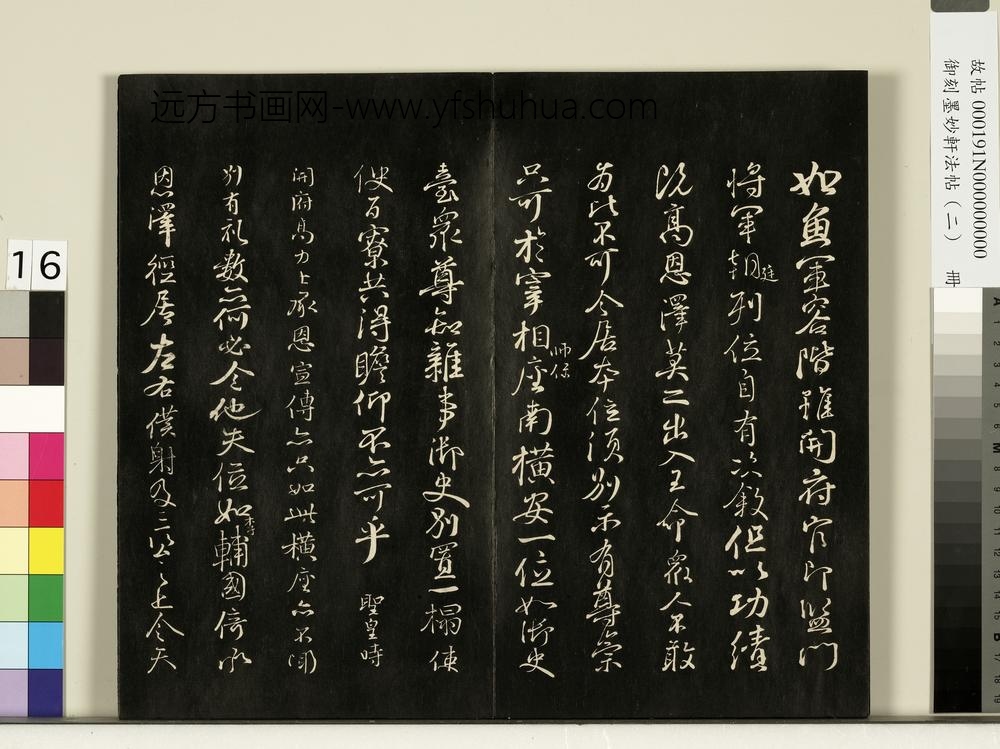 如魚軍容階雖開府官即監門
将軍朝廷列位自有次敘但以功績
既高恩澤莫二出入王命眾人不敢
為比不可令居本位須別示有尊崇
只可於宰相師保座南橫安一位如御史
臺眾尊知雜事御史別置一榻使
使百寮共得瞻仰不亦可乎 聖皇時
開府高力士承恩宣傳亦只如此橫座亦不聞
別有礼數亦何必令他失位如李輔國倚承
恩澤徑居左右僕射及三公之上令天
远方书画网-www.yfshuhua.com
故帖 000191N000000000
御刻墨妙軒法帖（二） 冊
16